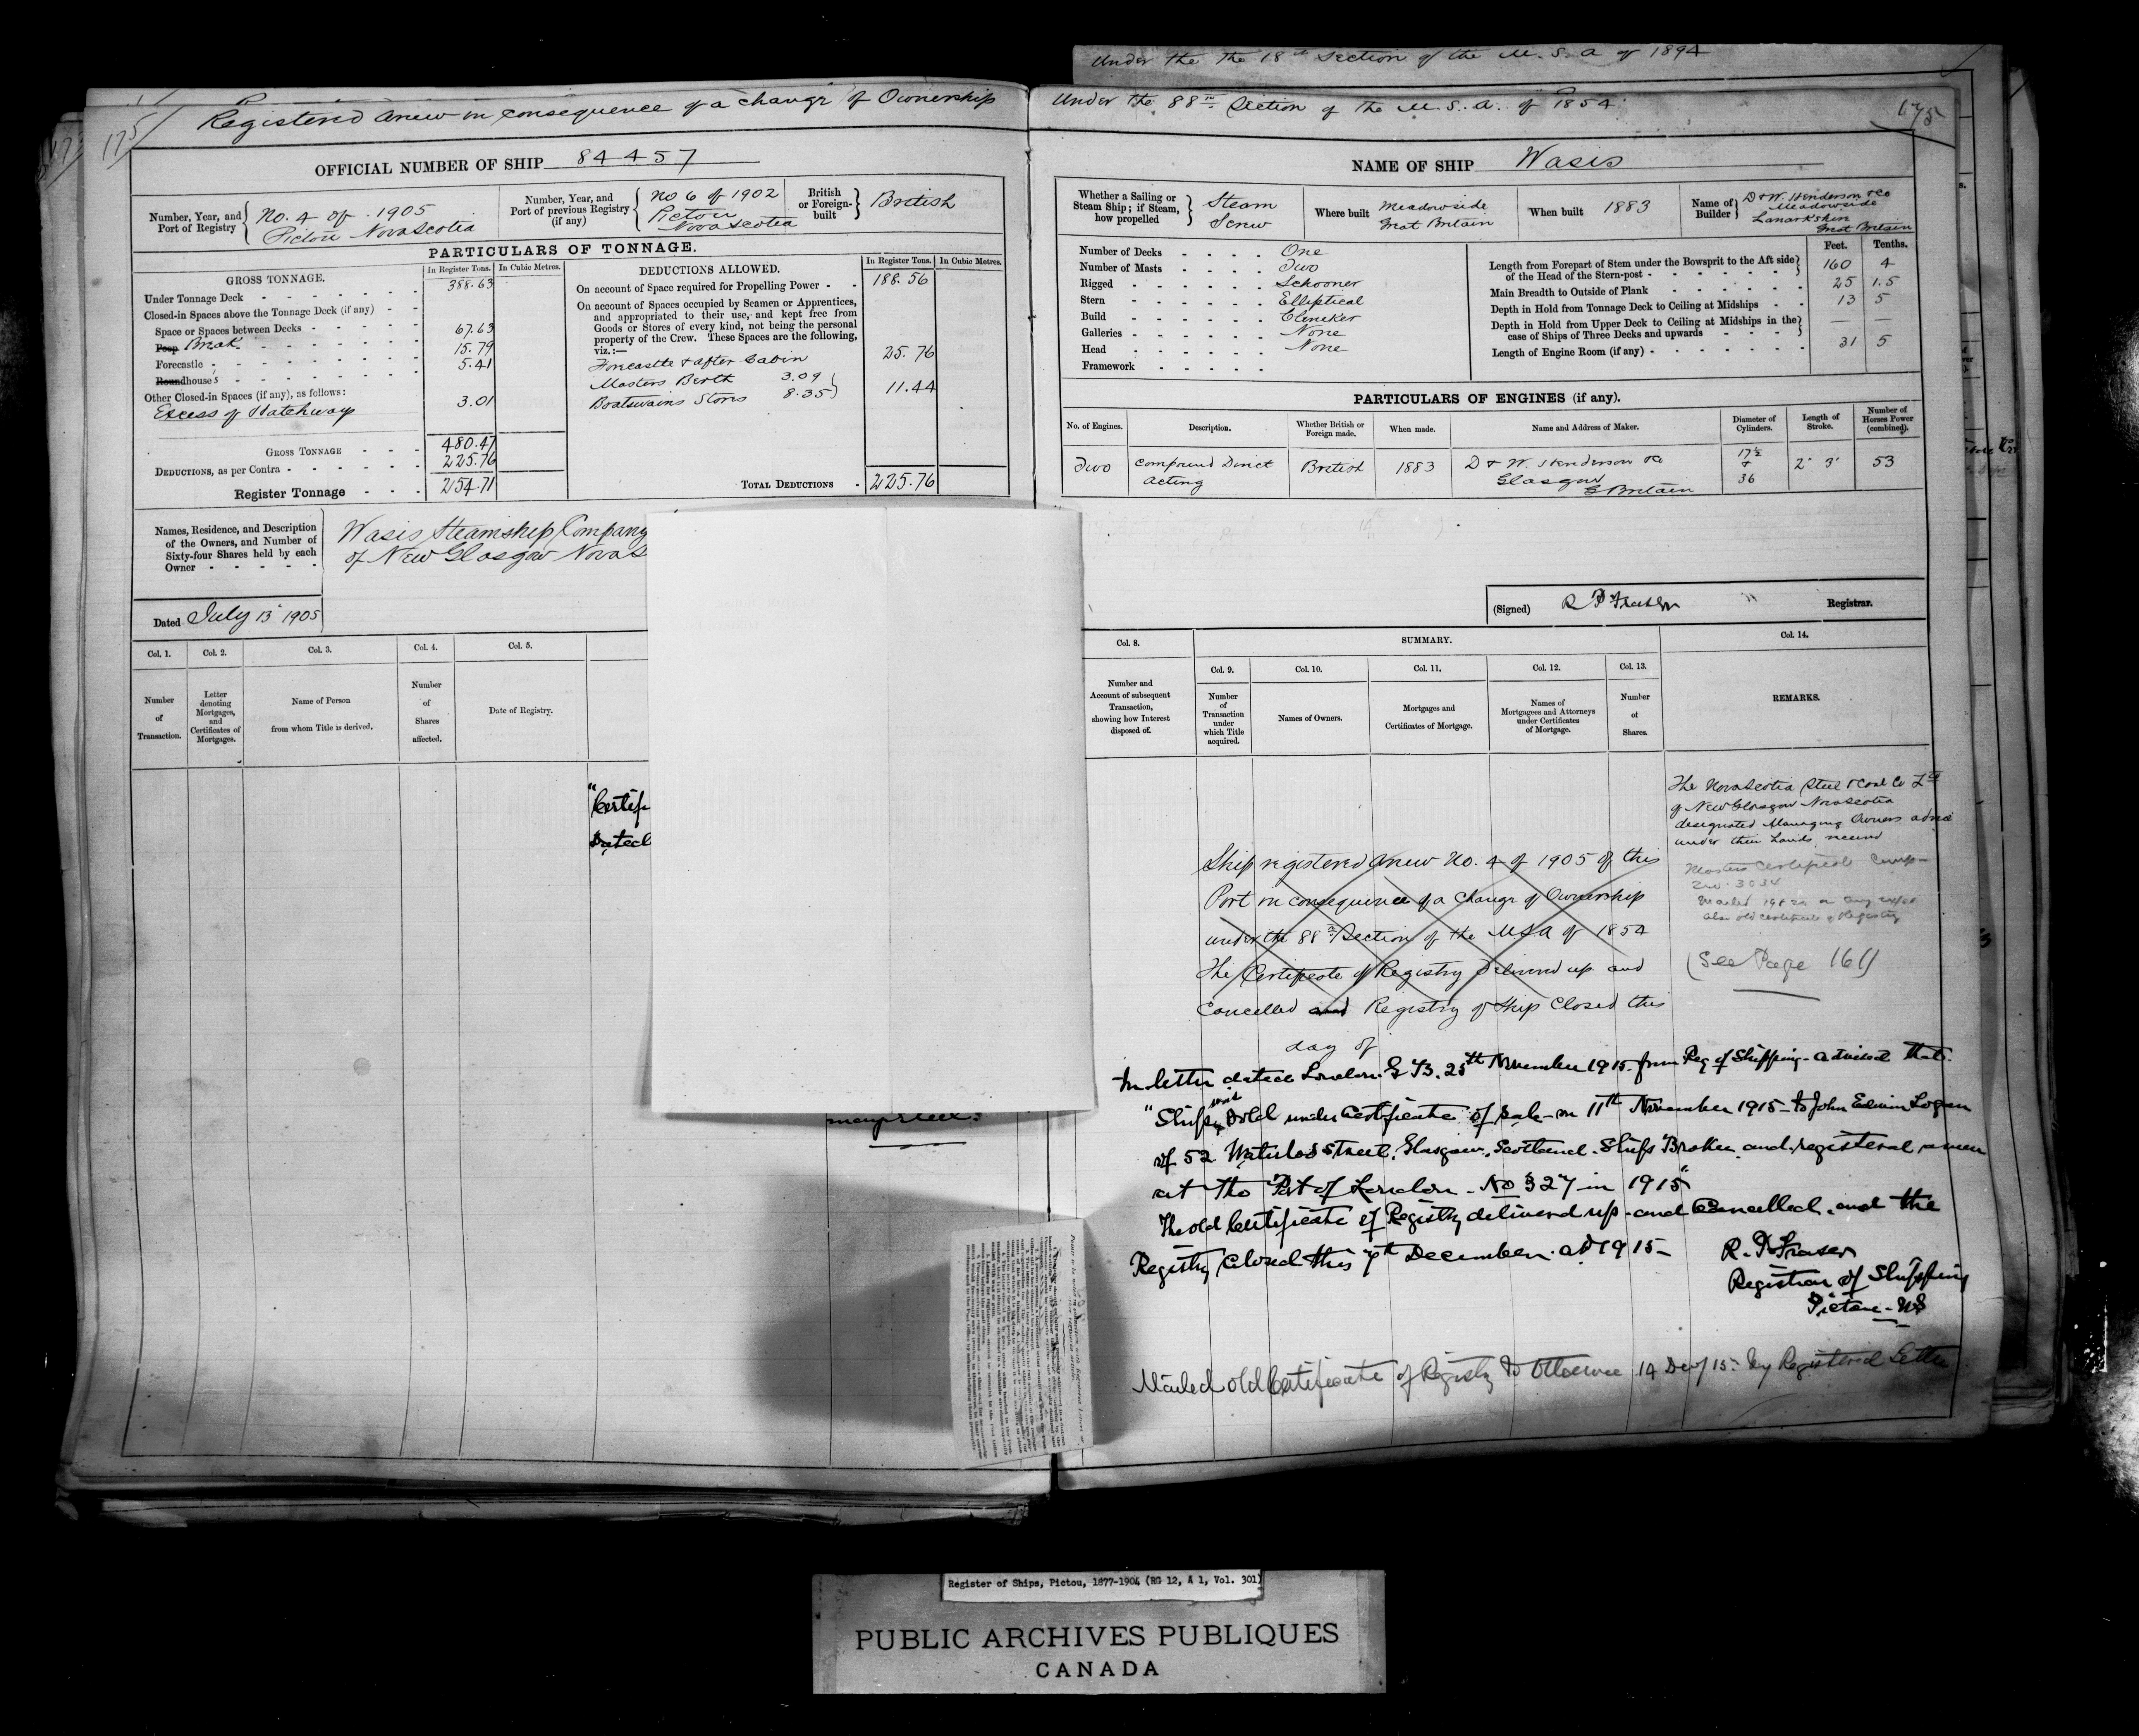 Under the the 18th Section of the M. S. A of 1894
Registered Anew in consequence of a change of Ownership
Under the 88th Section of the M. S. A. of 1854
175
175
OFFICIAL NUMBER OF SHIP 84457
NAME OF SHIP Wasis
Number, Year, and Port of Registry
No. 4 of 1905
Pictou Nova Scotia
Number, Year, and Port of previous Registry (if any)
No 6 of 1902
Pictou
Nova Scotia
British or Foreign-built
British
PARTICULARS OF TONNAGE.
GROSS TONNAGE.
In Register Tons. In Cubic Metres.
Under Tonnage Deck 388.63
Closed-in Spaces above the Tonnage Deck (if any)
Space or Spaces between Decks
Poop Break 67.63
Forecastle 15.79
Roundhouses 5.41
Other Closed-in Spaces (if any), as follows:
Excess of Hatchways 3.01
GROSS TONNAGE 480.47
DEDUCTIONS, as per Contra 225.76
Register Tonnage 254.71
DEDUCTIONS ALLOWED.
In Register Tons. In Cubic Metres.
On account of Space required for Propelling Power 188.56
On account of Spaces occupied by Seamen or Apprentices,
and appropriated to their use, and kept free from
Goods or Stores of every kind, not being the personal
property of the Crew. These Spaces are the following,
viz.:—
Forecastle & after Cabin 25.76
Masters Berth 3.09
Boatswains Stores 8.35 11.44
TOTAL DEDUCTIONS 225.76
Names, Residence, and Description
of the Owners, and Number of
Sixty-four Shares held by each
Owner
Wasis Steamship Company
of New Glasgow Nova S
Dated July 13th 1905
Col. 1. Col. 2. Col. 3. Col. 4. Col. 5.
Number of Transaction.
Letter denoting Mortgages, and Certificates of Mortgages.
Name of Person from whom Title is derived.
Number of Shares affected.
Date of Registry.
"Certif
Dated
Whether a Sailing or Steam Ship; if Steam, how propelled
Steam
Screw
Where built
Meadowside
Great Britain
When built 1883
Name of Builder
D & W. Henderson & Co
Meadowside
Lanarkshire
Great Britain
Number of Decks One
Number of Masts Two
Rigged Schooner
Stern Elliptical
Build Clencker
Galleries None
Head None
Framework
Feet. Tenths.
Length from Forepart of Stem under the Bowsprit to the Aft side
of the Head of the Stern-post 160 4
Main Breadth to Outside of Plank 25 1.5
Depth in Hold from Tonnage Deck to Ceiling at Midships 13 5
Depth in Hold from Upper Deck to Ceiling at Midships in the
case of Ships of Three Decks and upwards — —
Length of Engine Room (if any) 31 5
PARTICULARS OF ENGINES (if any).
No. of Engines. Description. Whether British or Foreign made. When made. Name and Address of Maker. Diameter of Cylinders. Length of Stroke. Number of Horses Power (combined).
Two Compound Direct Acting British 1883 D & W. Henderson & Co
Glasgow
G Britain
17½ & 36 2' 3" 53
(Signed) R P Fraser Registrar.
Col. 8. SUMMARY. Col. 14.
Col. 9. Col. 10. Col. 11. Col. 12. Col. 13.
Number and Account of subsequent Transaction, showing how Interest disposed of.
Number of Transaction under which Title acquired.
Names of Owners.
Mortgages and Certificates of Mortgage.
Names of Mortgagees and Attorneys under Certificates of Mortgage.
Number of Shares.
REMARKS.
The Nova Scotia Steel & Coal Co Ltd
of New Glasgow Nova Scotia
designated Managing Owners advice
under their hands
(See Page 161)
Ship registered Anew No. 4 of 1905 of this
Port in consequence of a Change of Ownership
under the 88th Section of the M.S.A of 1854
The Certificate of Registry Delivered up and
Cancelled and Registry of Ship Closed this
day of
In letter dated London G B. 25th November 1915 from Reg of Shipping - advised that
"Ship was sold under Certificate of Sale on 11th November 1915 - to John Edwin Logan
of 52 Waterloo Street, Glasgow, Scotland. Ships Broker and registered anew
at the Port of London - No 327 in 1915"
The old Certificate of Registry delivered up and Cancelled and the
Registry Closed this 7th December AD 1915 -
R. P Fraser
Registrar of Shipping
Pictou - NS
Mailed old Certificate of Registry to Ottawa 14 Dec/15 - by Registered Letter
Register of Ships, Pictou, 1877-1904 (RG 12, A 1, Vol. 301)
PUBLIC ARCHIVES PUBLIQUES
CANADA